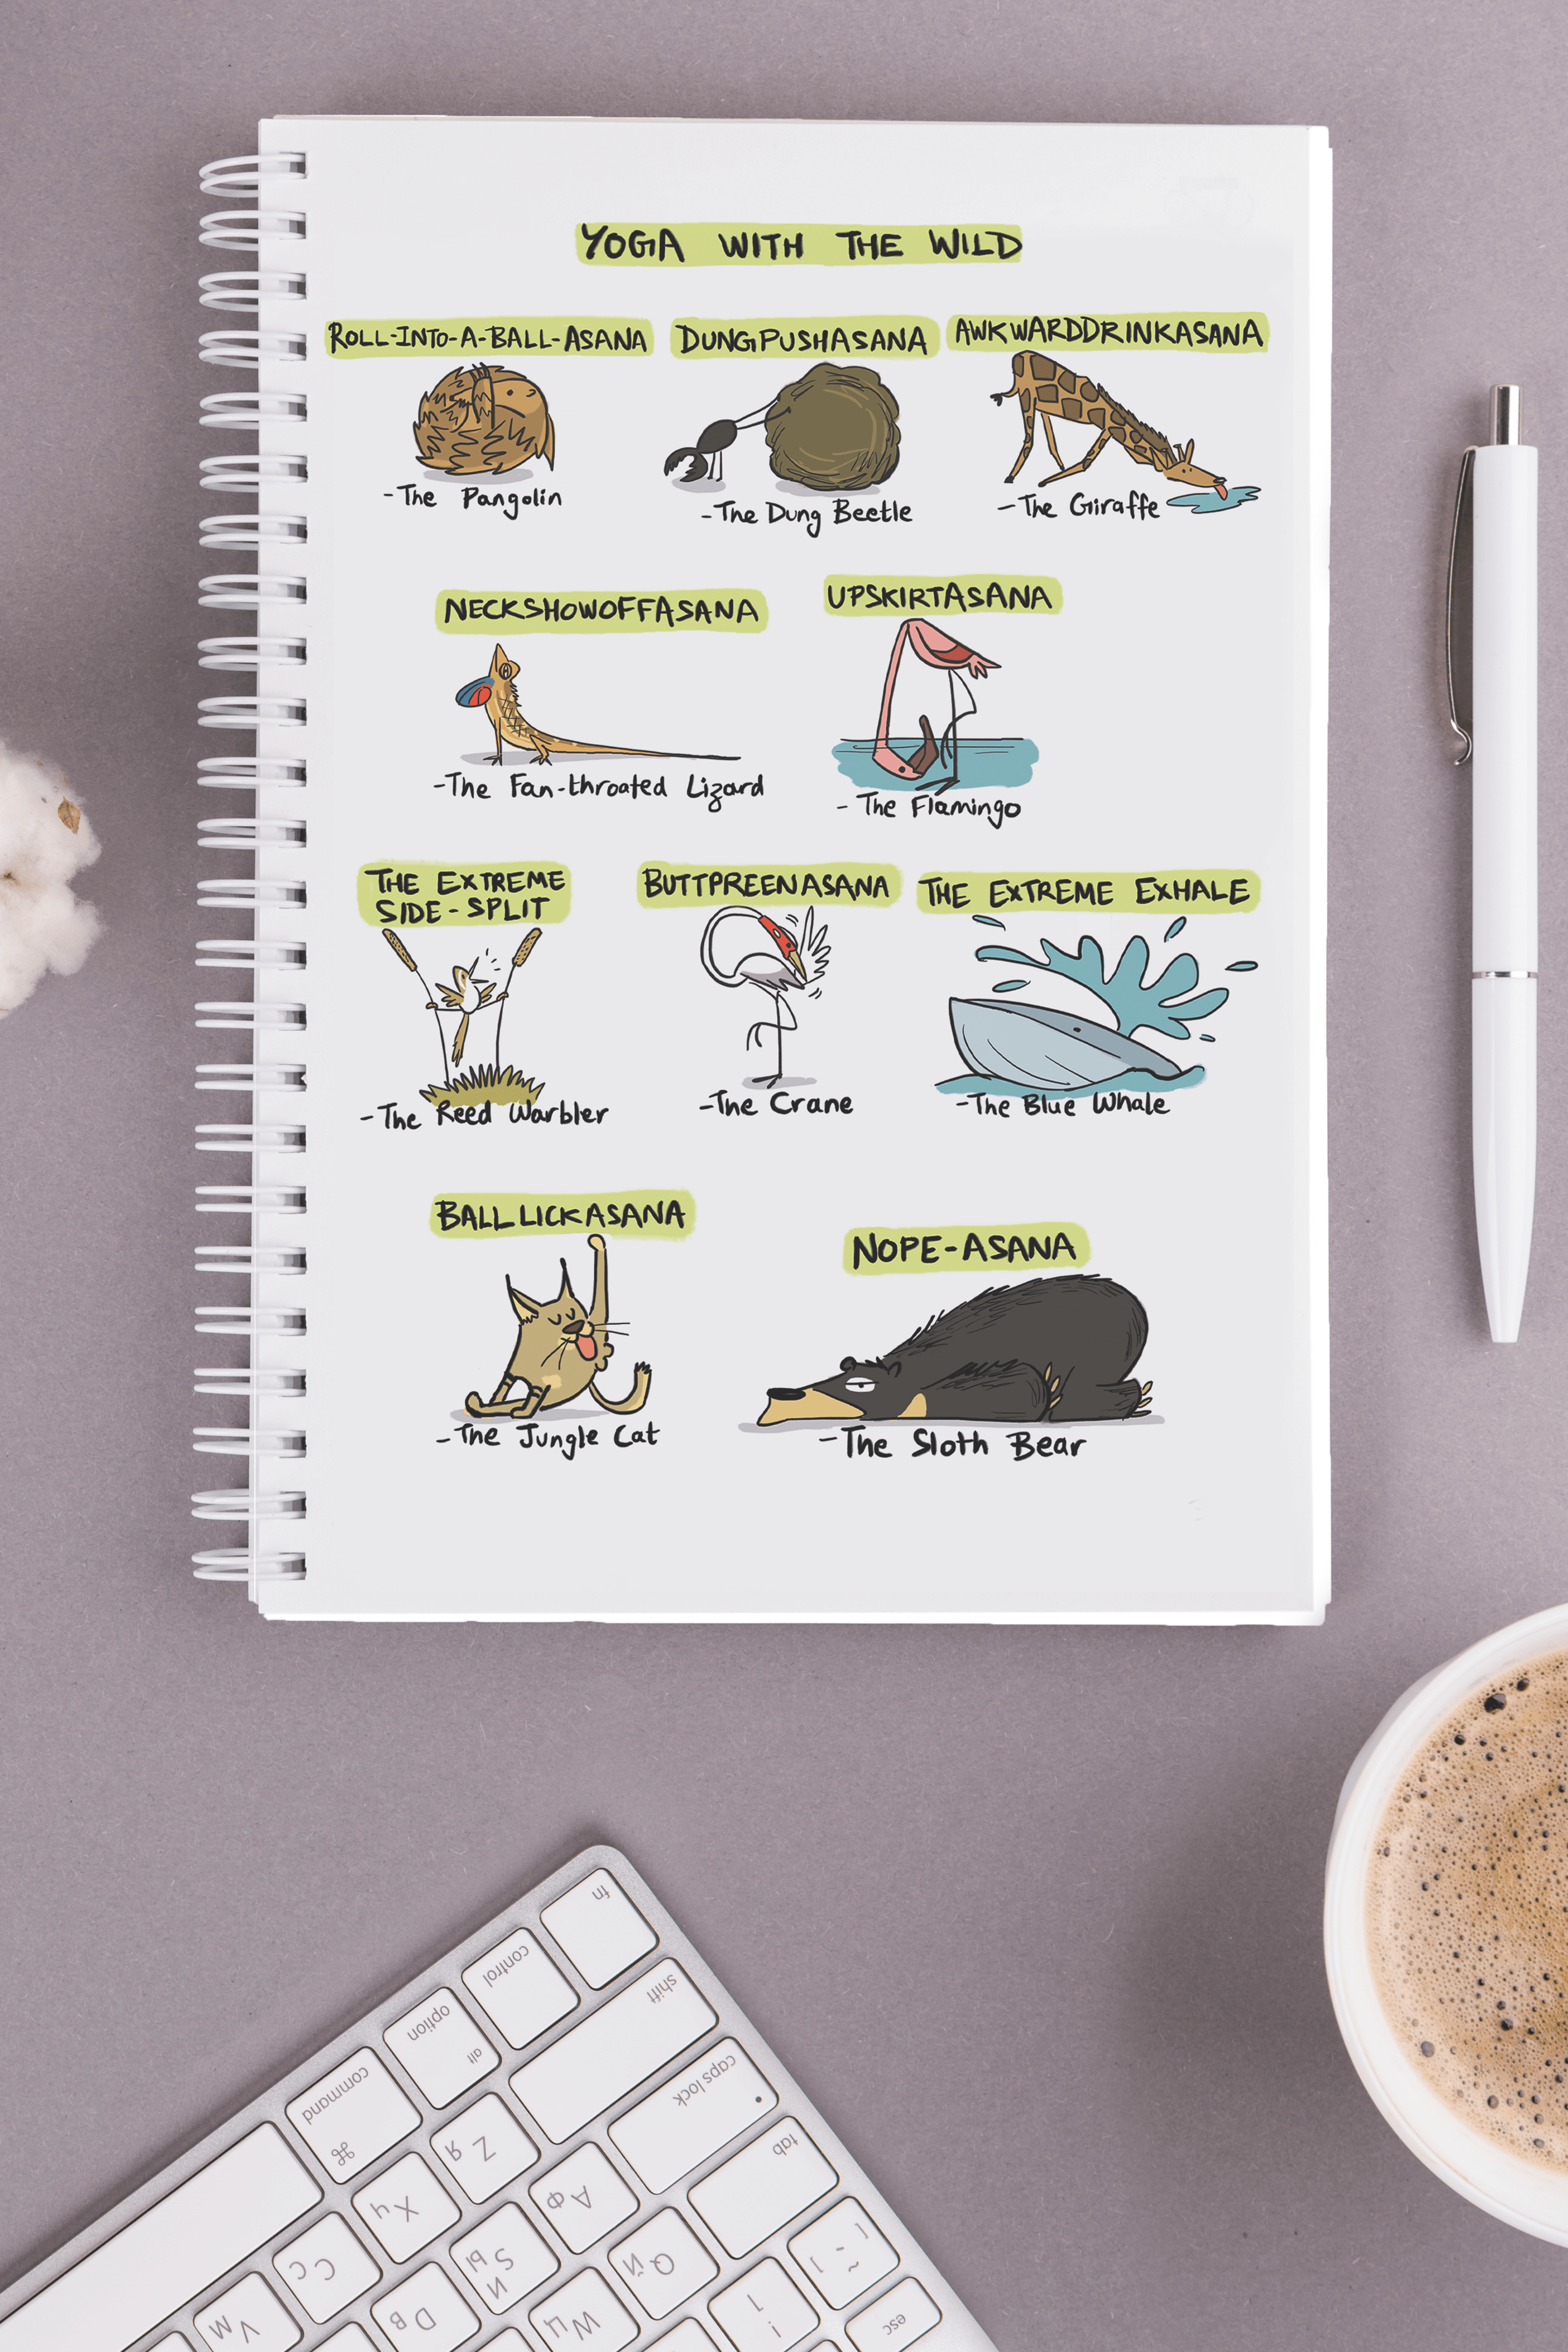 YOGA WITH THE WILD
ROLL-INTO-A-BALL-ASANA
DUNGPUSHASANA
AWKWARDDRINKASANA
-The Pangolin
-The Dung Beetle
-The Giraffe
NECKSHOWOFFASANA
UPSKIRTASANA
-The Fan-throated Lizard
- The Flamingo
THE EXTREME
SIDE-SPLIT
BUTTPREENASANA
THE EXTREME EXHALE
-The Reed Warbler
-The Crane
-The Blue Whale
BALLLICKASANA
NOPE-ASANA
-The Jungle Cat
-The Sloth Bear
fn
control
option
alt
command
⌘
shift
caps lock
tab
esc
Z Я
X Ч
C С
V М
A Ф
S Ы
D В
Q Й
W Ц